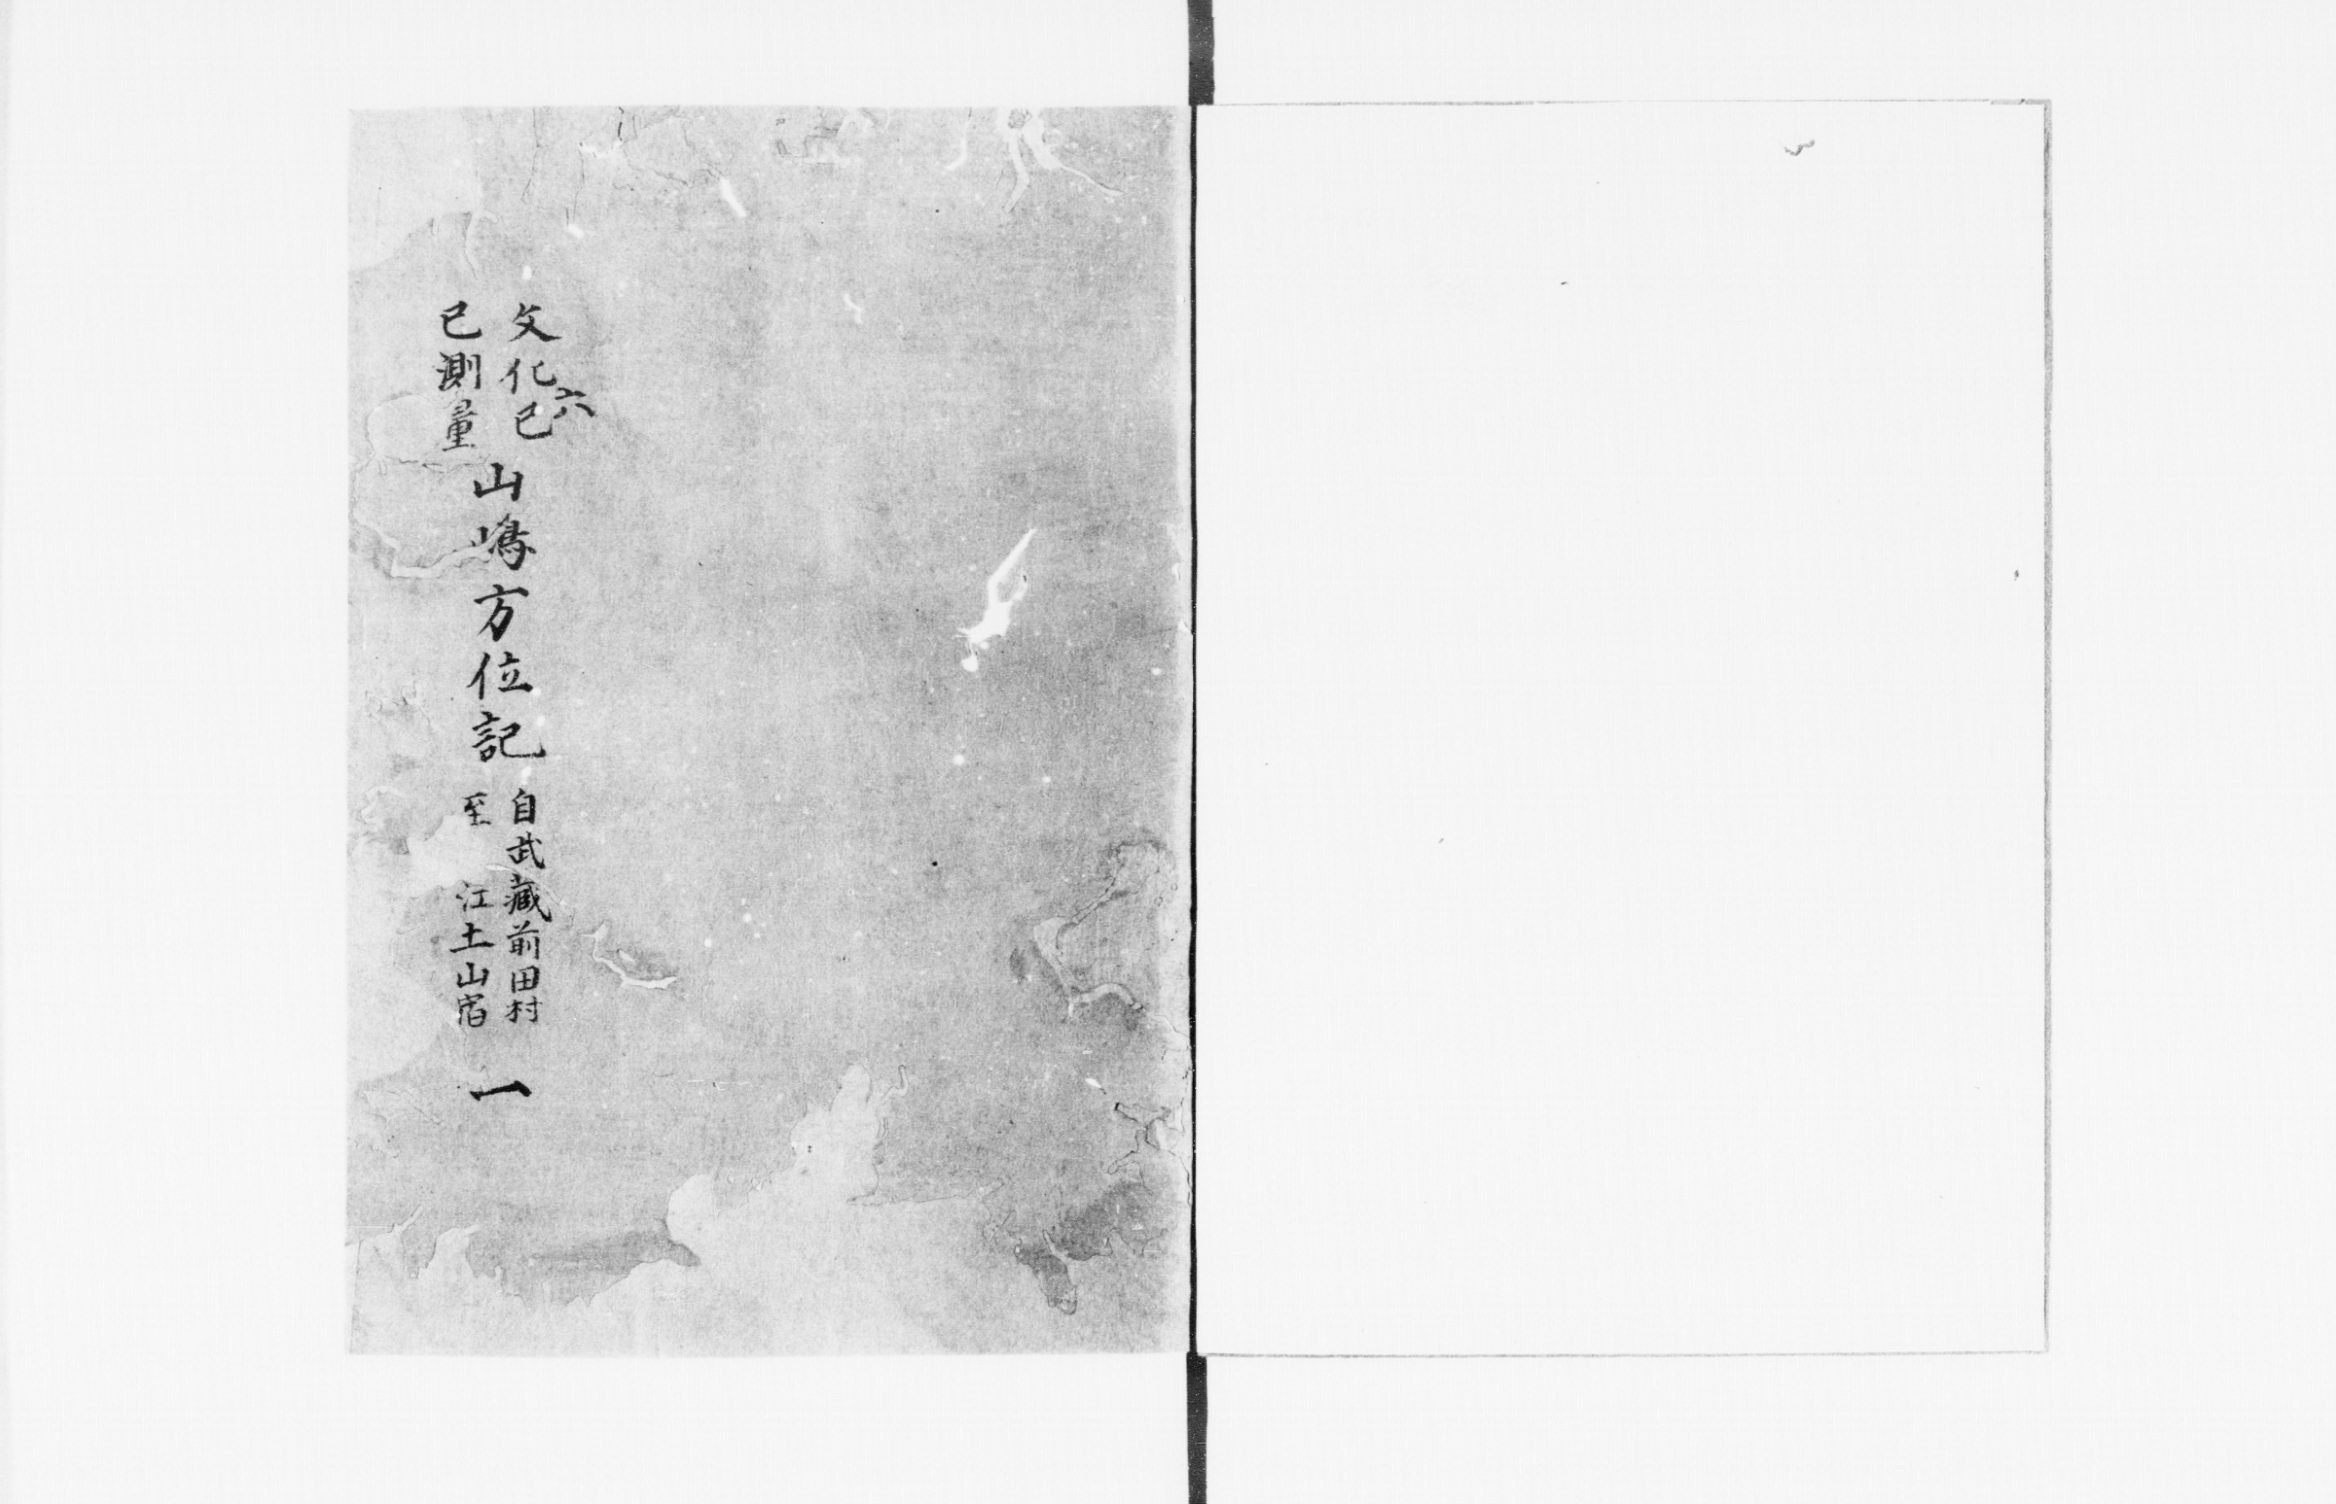 文化六巳
巳測量
山嶋方位記
自武蔵前田村
至 江土山宿
一